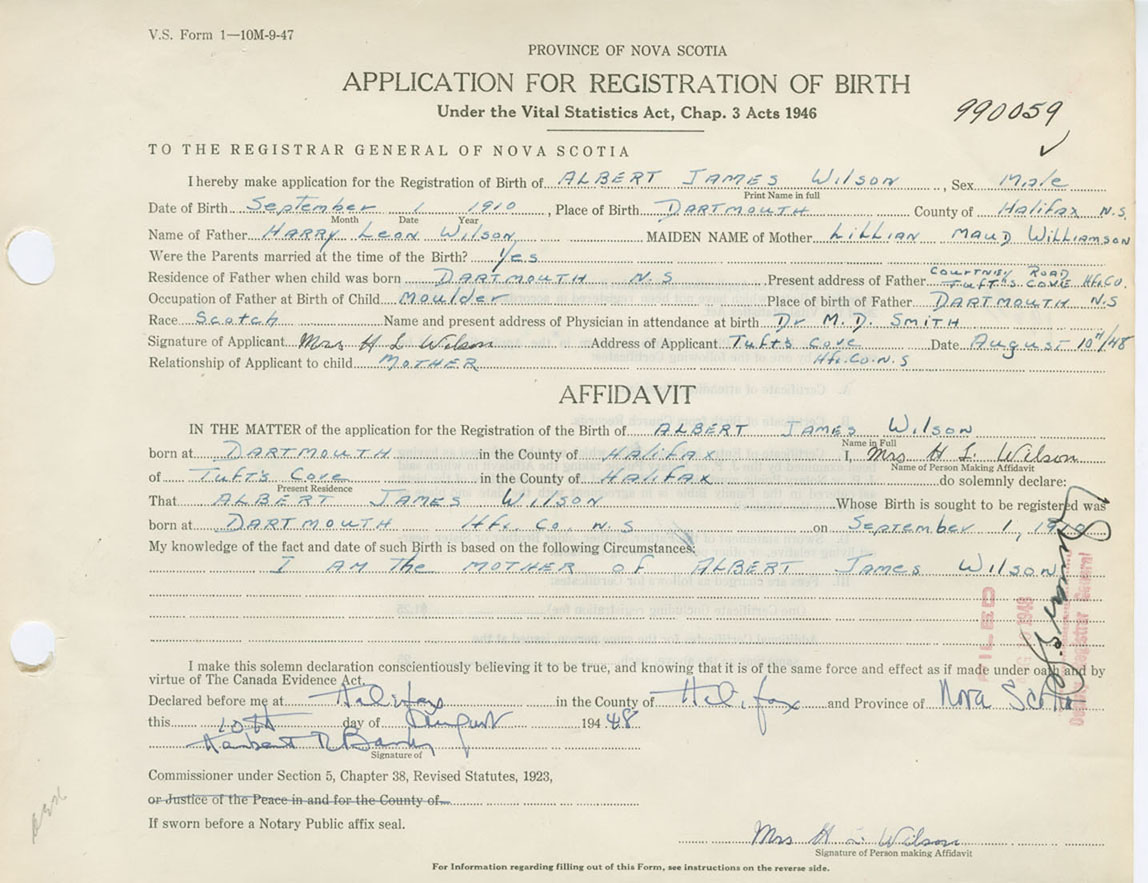 V.S. Form 1—10M-9-47
PROVINCE OF NOVA SCOTIA
APPLICATION FOR REGISTRATION OF BIRTH
Under the Vital Statistics Act, Chap. 3 Acts 1946
990059
TO THE REGISTRAR GENERAL OF NOVA SCOTIA
I hereby make application for the Registration of Birth of ALBERT JAMES WILSON, Sex Male
Print Name in full
Date of Birth September 1 1910, Place of Birth DARTMOUTH County of Halifax N.S.
Month Date Year
Name of Father HARRY LEON WILSON MAIDEN NAME of Mother LILLIAN MAUD WILLIAMSON
Were the Parents married at the time of the Birth? Yes
COURTNEY ROAD
Residence of Father when child was born DARTMOUTH N.S Present address of Father TUFT'S COVE Hfx Co.
Occupation of Father at Birth of Child Moulder Place of birth of Father DARTMOUTH N.S
Race Scotch Name and present address of Physician in attendance at birth Dr M.D. SMITH
Signature of Applicant Mrs H L Wilson Address of Applicant Tuft's Cove Date August 10th/48
Relationship of Applicant to child MOTHER Hfx.Co.N.S
AFFIDAVIT
IN THE MATTER of the application for the Registration of the Birth of ALBERT JAMES WILSON
Name in Full
born at DARTMOUTH in the County of HALIFAX I, Mrs H L Wilson
Name of Person Making Affidavit
of TUFT'S Cove in the County of HALIFAX do solemnly declare:
Present Residence
That ALBERT JAMES WILSON Whose Birth is sought to be registered was
born at DARTMOUTH Hfx. Co. N.S on September 1, 1910
My knowledge of the fact and date of such Birth is based on the following Circumstances:
I AM the MOTHER of ALBERT JAMES WILSON
FILED
1948
Deputy Registrar General
I make this solemn declaration conscientiously believing it to be true, and knowing that it is of the same force and effect as if made under oath and by
virtue of The Canada Evidence Act.
Declared before me at Halifax in the County of Halifax and Province of Nova Scotia
this 10th day of August 1948
Signature of
Commissioner under Section 5, Chapter 38, Revised Statutes, 1923,
or Justice of the Peace in and for the County of
If sworn before a Notary Public affix seal.
Mrs H L Wilson
Signature of Person making Affidavit
For Information regarding filling out of this Form, see instructions on the reverse side.